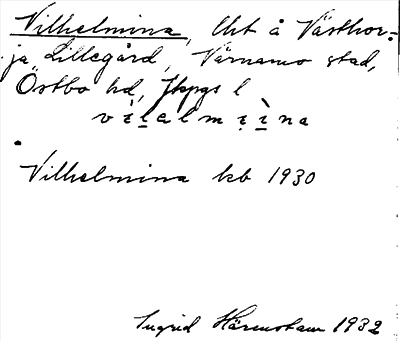 Vilhelmina, lht å Västhor-
ja Lillegård, Värnamo stad,
Östbo hd, Jkpgs l
vilalmina
Vilhelmina kb 1930
Ingrid 1932